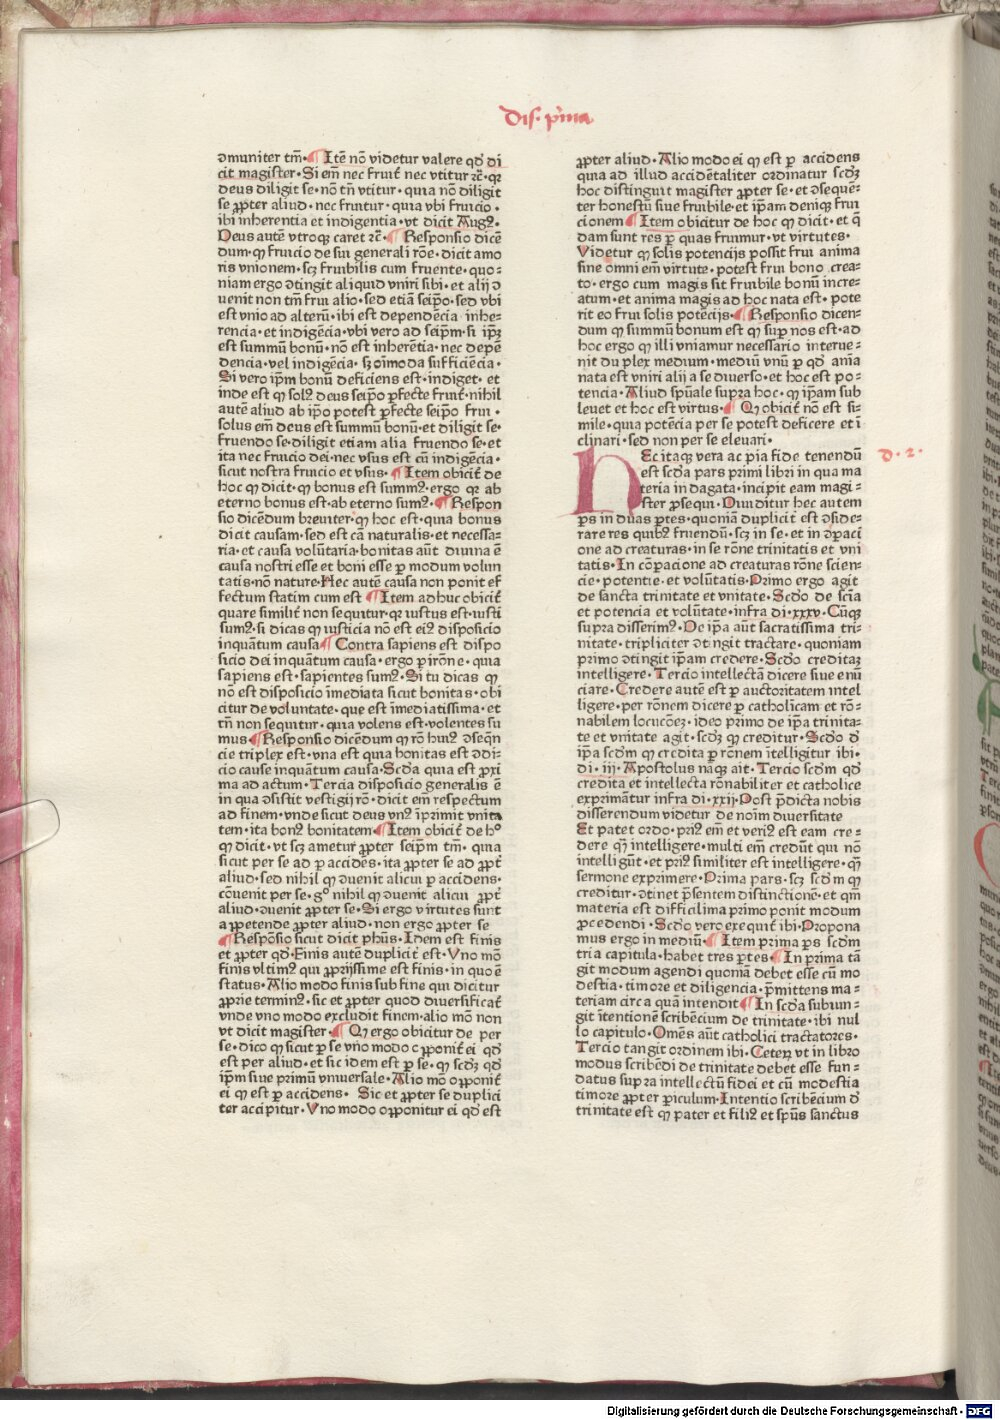 Dis. pͥma
ꝯmuniter tm̄. ¶ Itē nō videtur valere qd̓ di
cit magister. Si em̄ nec fruit̉ nec vtitur rē. qr
deus diligit se. nō tn̄ vtitur. quia nō diligit
se ꝓpter aliud. nec fruitur. quia vbi fruicio.
ibi inherentia et indigentia. vt dicit Augꝰ.
Deus autē vtroqꝫ caret rē. ¶ Responsio dicē
dum. ꝙ fruicio de sui generali rōe. dicit amo
ris vnionem. scꝫ fruibilis cum fruente. quo⸗
niam ergo ꝯtingit aliquid vniri sibi. et alij ꝯ
uenit non tm̄ frui alio. sed etiā seip̄o. sed vbi
est vnio ad alterū. ibi est dependēcia inhe⸗
rencia. et indigēcia. vbi vero ad seip̄m. si ip̄ꝫ
est summū bonū. nō est inherētia. nec depē
dencia. vel indigēcia. sꝫ oīmoda sufficiēcia.
Si vero ip̄m bonū deficiens est. indiget. et
inde est ꝙ solꝰ deus seip̄o ꝑfecte fruit̉. nihil
autē aliud ab ip̄o potest ꝑfecte seip̄o frui.
solus em̄ deus est summū bonū. et diligit se.
fruendo se. diligit etiam alia fruendo se. et
ita nec fruicio dei. nec vsus est cū indigēcia.
sicut nostra fruicio et vsus. ¶ Item obicit̉ de
hoc ꝙ dicit. ꝙ bonus est summꝰ. ergo qr ab
eterno bonus est. ab eterno sumꝰ. ¶ Respon
sio dicēdum breuiter. ꝙ hoc est. quia bonus
dicit causam. sed est cā naturalis. et necessa⸗
ria. et causa volūtaria. bonitas aūt diuina ē
causa nostri esse et boni esse ꝑ modum volun
tatis. nō nature. Hec autē causa non ponit ef
fectum statim cum est ¶ Item adhuc obicit̉
quare similit̉ non sequitur. qr iustus est. iusti
sumꝰ. si dicas ꝙ iusticia nō est eiꝰ disposicio
inquātum causa ¶ Contra sapiens est dispo
sicio dei inquātum causa. ergo ꝑ irōne. quia
sapiens est. sapientes sumꝰ. Si tu dicas ꝙ
nō est disposicio īmediata sicut bonitas. obi
citur de voluntate. que est īmediatissima. et
tn̄ non sequitur. quia volens est. volentes su
mus. ¶ Responsio dicēdum ꝙ rō huiꝰ ꝯseqn̄
cie triplex est. vna est quia bonitas est ꝯdi⸗
cio cause inquātum causa. Scd̄a quia est ꝓxi
ma ad actum. Tercia disposicio generalis ē
in qua ꝯsistit vestigij rō. dicit em̄ respectum
ad finem. vnde sicut deus vnꝰ īprimit vnita
tem. ita bonꝰ bonitatem ¶ Item obicit̉ de hº
ꝙ dicit. vt scꝫ ametur ꝓpter seip̄m tm̄. quia
sicut per se ad ꝑ accides. ita ꝓpter se ad ꝓpt̉
aliud. sed nihil ꝙ ꝯuenit alicui ꝑ accidens.
cōuenit per se. gº nihil ꝙ ꝯuenit alicui ꝓpt̉
aliud. ꝯuenit ꝓpter se. Si ergo virtutes sunt
appetende ꝓpter aliud. non ergo ꝓpter se
¶ Respōsio sicut dicit ph̄us. Idem est finis
et ꝓpter qd̓. Finis autē duplicit̉ est. Vno mō
finis vltimꝰ qui ꝓprijssime est finis. in quo ē
status. Alio modo finis sub fine qui dicitur
ꝓprie terminꝰ. sic et ꝓpter quod diuersificat̉
vnde vno modo excludit finem. alio mō non
vt dicit magister. ¶ Qꝭ ergo obicitur de per
se. dico ꝙ sicut ꝑ se vno modo cꝓponit̉ ei qd̓
est per aliud. et sic idem est ꝑ se. ꝙ scd̓ꝫ qd̓
ip̄m siue primū vniuersale. Alio mō oꝓponit̉
ei ꝙ est ꝑ accidens. Sic et ꝓpter se duplici
ter accipitur. Vno modo oꝓponitur ei qd̓ est
ꝓpter aliud. Alio modo ei ꝙ est ꝑ accidens
quia ad illud accidētaliter ordinatur scd̓ꝫ
hoc distinguit magister ꝓpter se. et ꝯsequē⸗
ter honestū siue fruibile. et ip̄am deniqꝫ frui
cionem ¶ Item obicitur de hoc ꝙ dicit. et q̄
dam sunt res ꝑ quas fruimur. vt virtutes.
Videtur ꝙ solis potencijs possit frui anima
sine omni em̄ virtute. potest frui bono crea⸗
to. ergo cum magis sit fruibile bonū incre⸗
atum. et anima magis ad hoc nata est. pote
rit eo frui solis potēcijs. ¶ Responsio dicen⸗
dum ꝙ summū bonum est ꝙ suꝑ nos est. ad
hoc ergo ꝙ illi vniamur necessario interue⸗
nit duplex medium. mediū vnū ꝑ qd̓ aīma
nata est vniri alij a se diuerso. et hoc est po⸗
tencia. Aliud spūale supra hoc. ꝙ ip̄am sub
leuet et hoc est virtus. ¶ Qꝭ obicit̉ nō est si⸗
mile. quia potēcia per se potest deficere et ī
clinari. sed non per se eleuari.
d. 2.
hEc itaqꝫ vera ac pia fide tenendū
est scd̄a pars primi libri in qua ma
teria indagata. incipit eam magi⸗
ster ꝓsequi. Diuiditur hec autem
ꝑs in duas ꝑtes. quoniā duplicit̉ est ꝯside⸗
rare res quibꝰ fruendū. scꝫ in se. et in ꝯꝑaci
one ad creaturas. in se rōne trinitatis et vni
tatis. In cōꝑacione ad creaturas rōne scien⸗
cie. potentie. et volūtatis. Primo ergo agit
de sancta trinitate et vnitate. Scd̄o de scīa
et potencia et volūtate. infra di. xxxv. Cūqꝫ
supra disserimꝰ. De ip̄a aūt sacratissima tri⸗
nitate. tripliciter ꝯtingit tractare. quoniam
primo ꝯtingit ip̄am credere. Scd̄o creditaꝫ
intelligere. Tercio intellectā dicere siue enū
ciare. Credere autē est ꝑ auctoritatem intel
ligere. per rōnem dicere ꝑ catholicam et rō⸗
nabilem locucōeꝫ. ideo primo de ip̄a trinita⸗
te et vnitate agit. scd̓ꝫ ꝙ creditur. Scd̄o d̓
ip̄a scd̓m ꝙ credita ꝑ rōnem ītelligitur ibi.
di. iij. Apostolus nāqꝫ ait. Tercio scd̓m qd̓
credita et intellecta rōnabiliter et catholice
exprimātur infra di. xxij. Post p̄dicta nobis
disserendum videtur de noīm diuersitate
Et patet ordo. priꝰ em̄ et veriꝰ est eam cre⸗
dere qꝫ̄ intelligere. multi em̄ credūt qui nō
intelligūt. et priꝰ similiter est intelligere. qꝫ̄
sermone exprimere. Prima pars. scꝫ scd̓m ꝙ
creditur. ꝯtinet p̄sentem distinctionē. et qm̄
materia est difficilima primo ponit modum
ꝓcedendi. Scd̄o vero exequit̉ ibi. Propona
mus ergo in mediū. ¶ Item prima ꝑs scd̓m
tria capitula. habet tres ꝑtes. ¶ In prima tā
git modum agendi quoniā debet esse cū mo
destia. timore et diligencia. p̄mittens ma⸗
teriam circa quā intendit ¶ In scd̄a subiun⸗
git ītentionē scribēcium de trinitate. ibi nul
lo capitulo. Omēs aūt catholici tractatores.
Tercio tangit ordinem ibi. Ceteꝝ vt in libro
modus scribēdi de trinitate debet esse fun⸗
datus supra intellectū fidei et cū modestia
timore ꝓpter ꝑiculum. Intentio scribēcium d̓
trinitate est ꝙ pater et filiꝰ et spūs sanctus
Digitalisierung gefördert durch die Deutsche Forschungsgemeinschaft - DFG